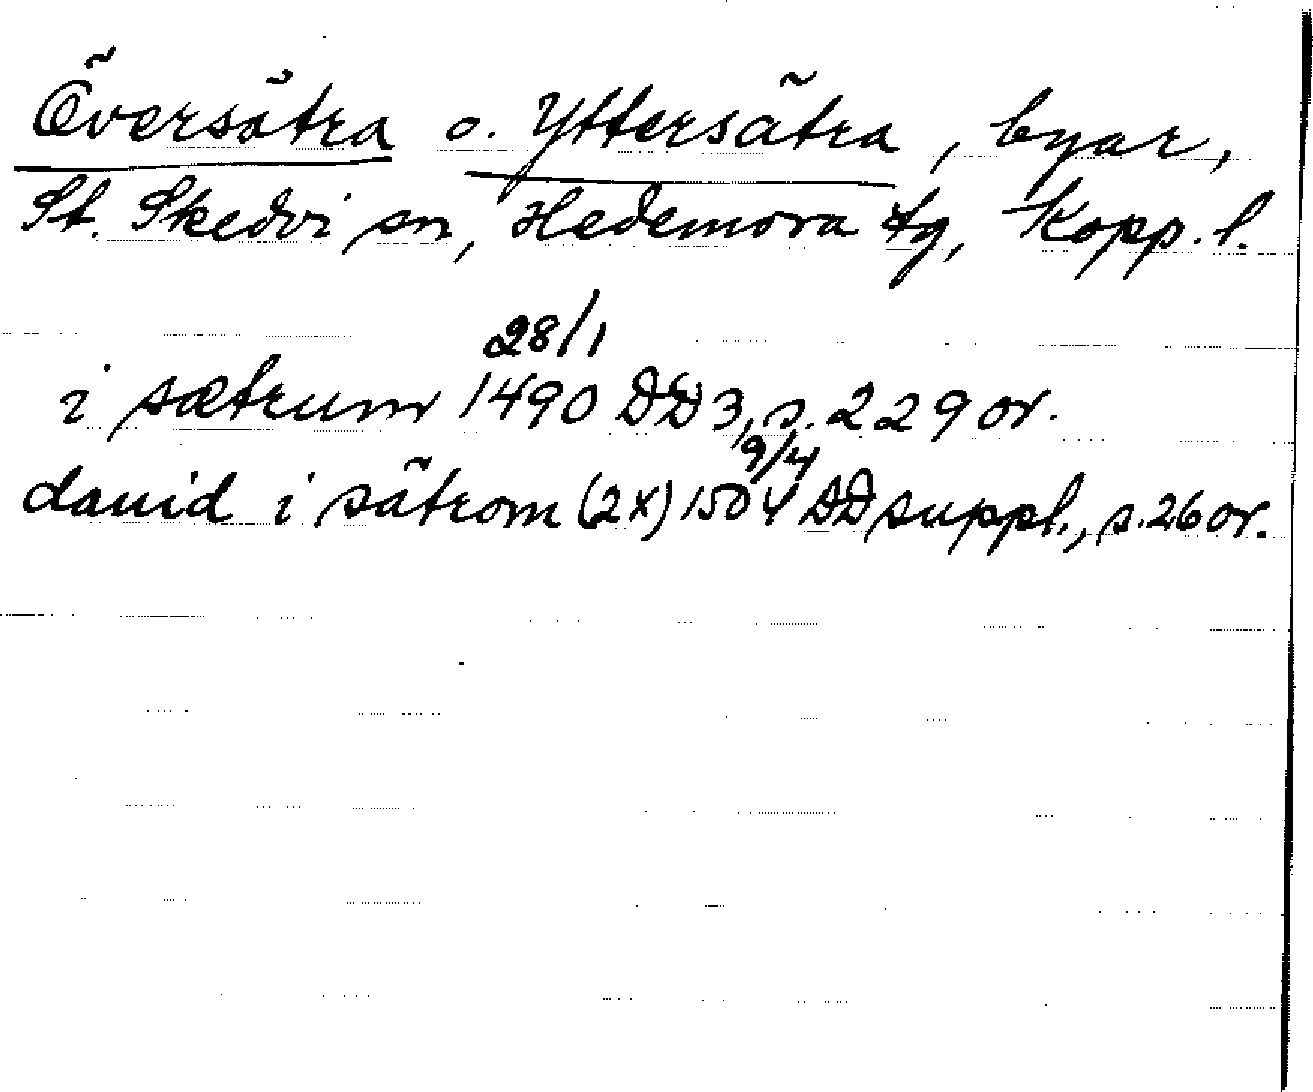 Översätra o. Yttersätra, byar,
St. Skedvi sn, Hedemora tg, Kopp. l.
28/1
i sætrum 1490 DD 3, s. 229 or.
9/4
dauid i sätrom (2x) 1504 DD suppl., s. 26 or.